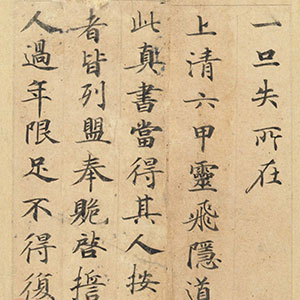 一旦失所在
上清六甲靈飛隱道
此真書當得其人按
者皆列盟奉貺啓誓
人過年限足不得復